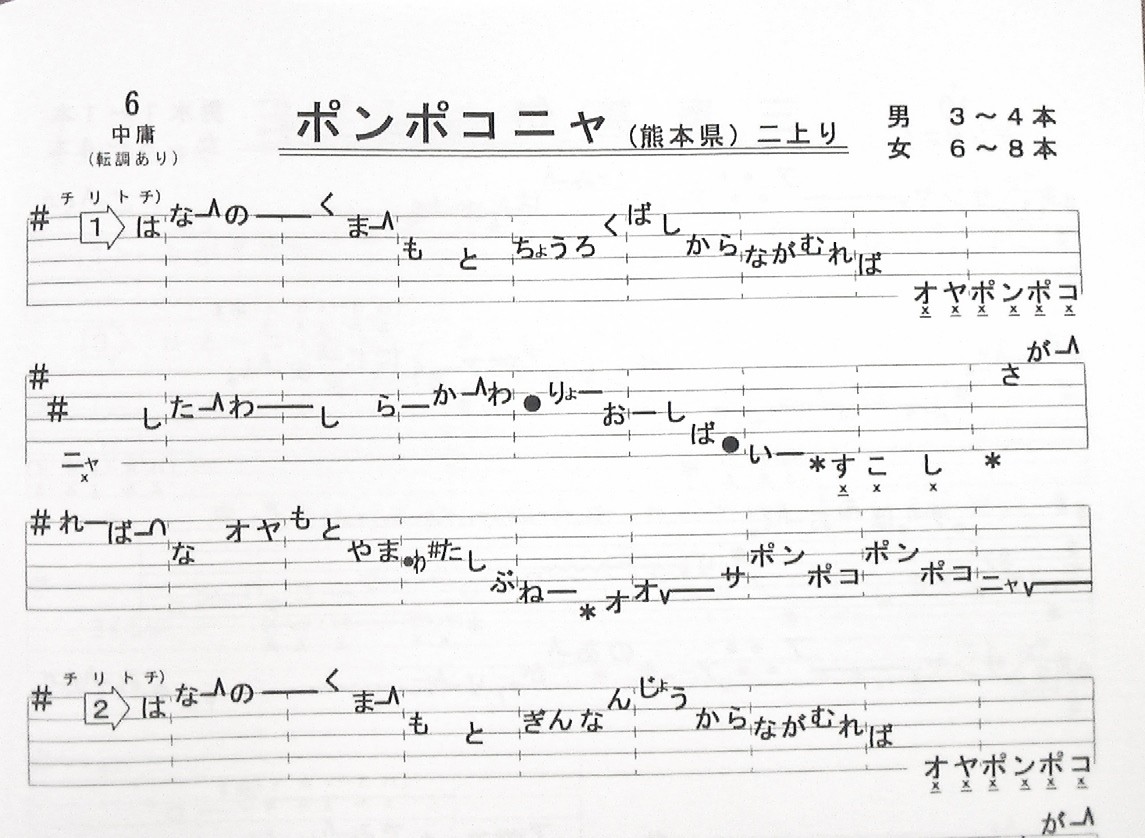 6
中庸
(転調あり)
ポンポコニャ(熊本県)二上り
男 3～4本
女 6～8本
チリトチ)
# 1 はなのくまもとちょうろくばしからながむれば
オヤポンポコ
がー
# # したわしらーかーわ●りょーおーしば●いー*すこし*さ
ニャ
# れーばーな オヤもとやま●わ#たしぶねー*オオサポンポコポンポコニャ
チリトチ)
# 2 はなのくまもとぎんなんじょうからながむれば
オヤポンポコ
がー